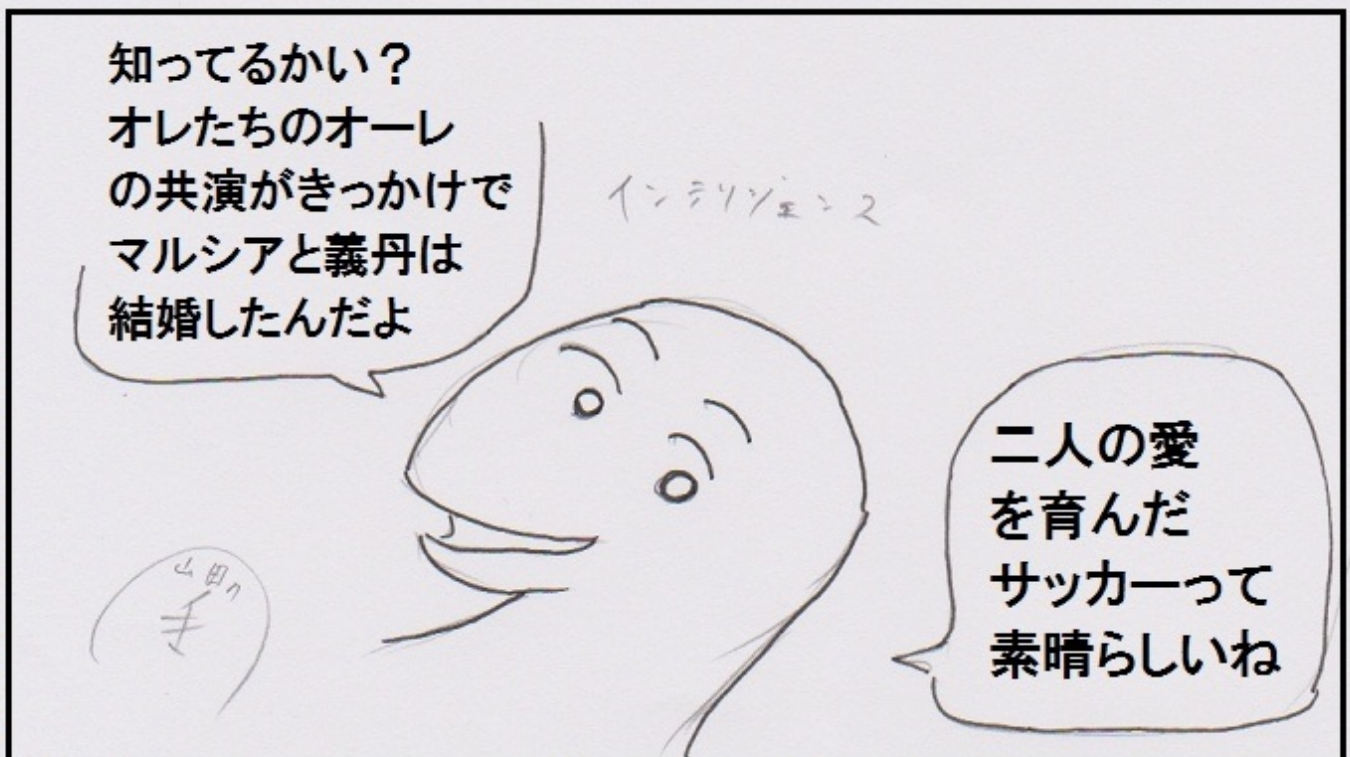 知ってるかい?
オレたちのオーレ
の共演がきっかけで
マルシアと義丹は
結婚したんだよ
インテリジェンス
二人の愛
を育んだ
サッカーって
素晴らしいね
山田の
手